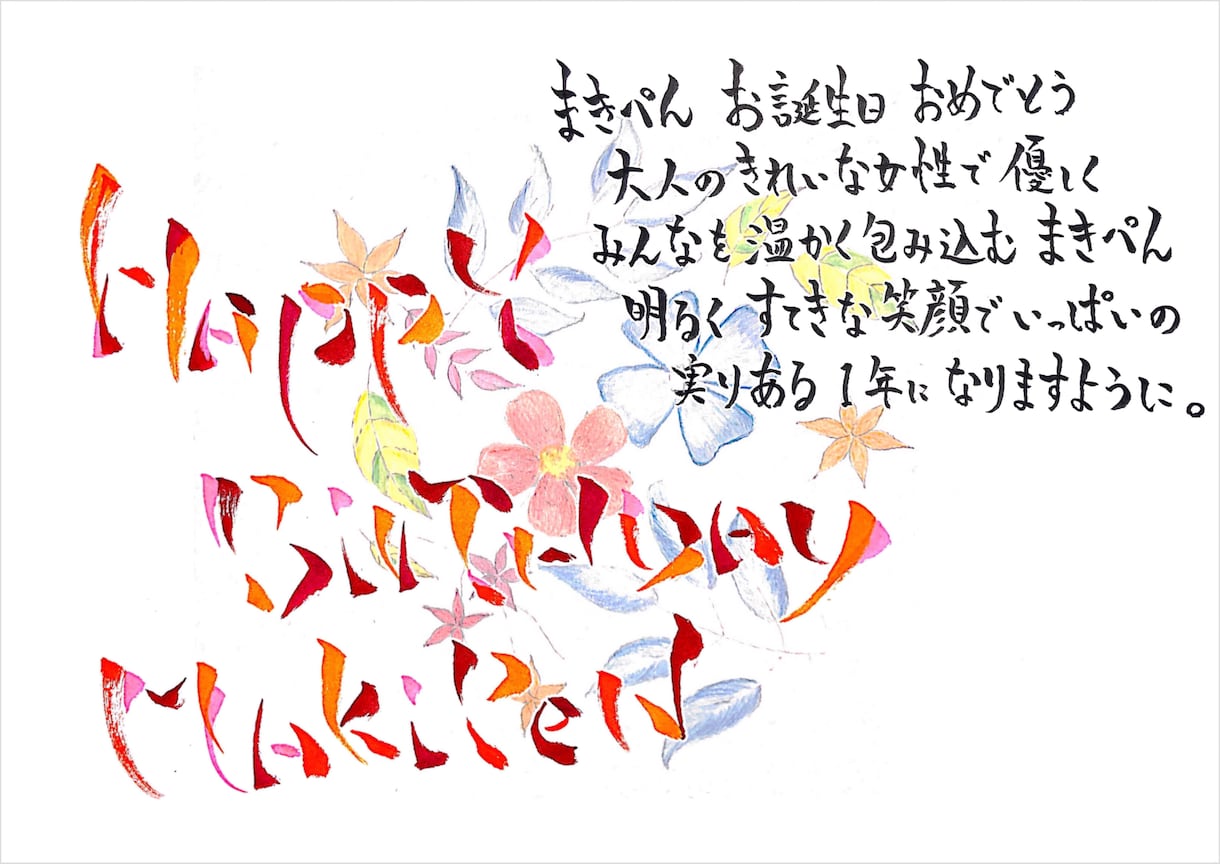 まきぺん お誕生日 おめでとう
大人のきれいな女性で 優しく
みんなを温かく包み込む まきぺん
明るく すてきな笑顔でいっぱいの
実りある 1年に なりますように。
Happy
Birthday
MakiPen